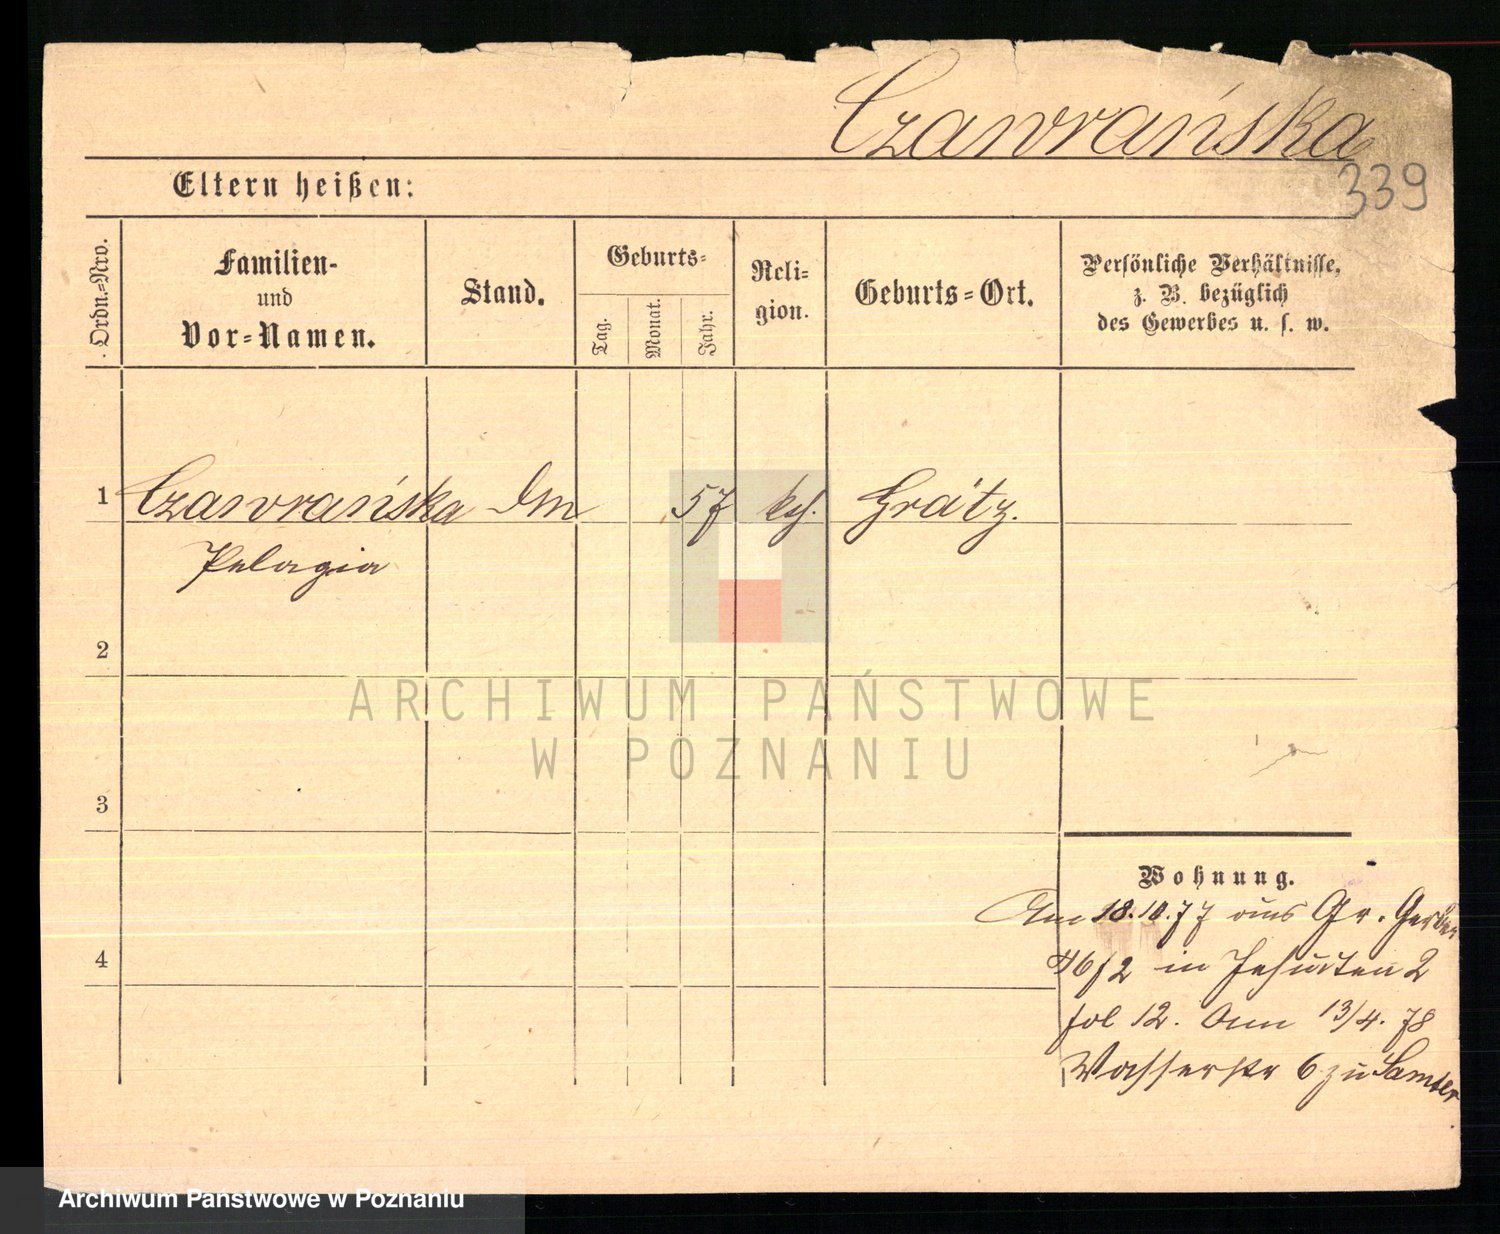 Czawrańska
339
Eltern heißen:
Ordn.-Nro.
Familien-
und
Vor-Namen.
Stand.
Geburts-
Tag.
Monat.
Jahr.
Reli-
gion.
Geburts-Ort.
Persönliche Verhältnisse,
z. B. bezüglich
des Gewerbes u. s. w.
1 Czawrańska 57 Grätz.
Pelagia
2
3
4
Wohnung.
Am 18.10.77 aus Gr. Gerber
46/2 in Jesuiten 2
fol 12. Am 13/4. 78
Wasserstr 6 zu Samter
ARCHIWUM PAŃSTWOWE
W POZNANIU
Archiwum Państwowe w Poznaniu